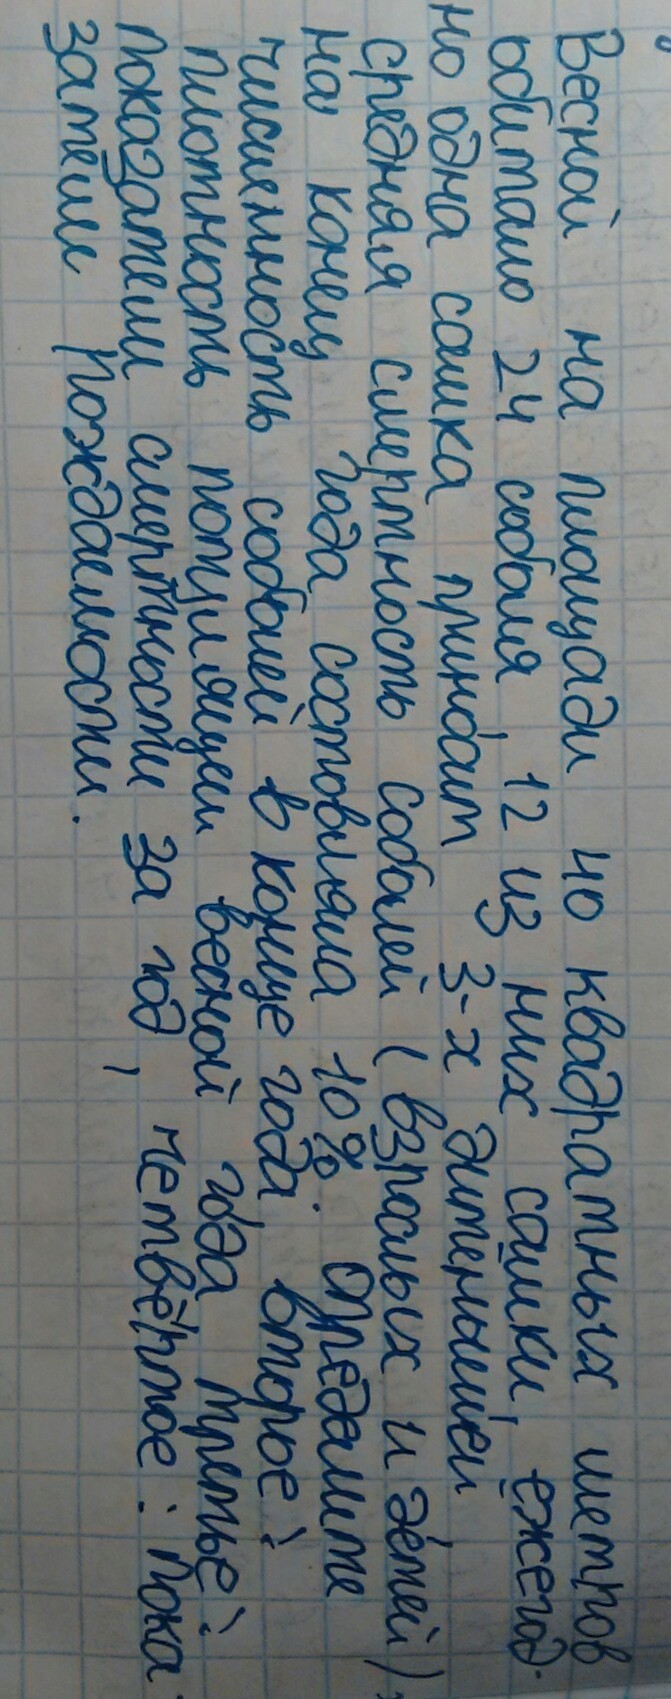 Весной на площади 40 квадратных метров
обитало 24 соболя 12 из них самки, ежегод-
но одна самка приносит 3-х дитенышей
средняя смертность соболей (взрослых и детей),
на конец года состовляла 10%. определите
численность соболей в конце года. второе:
плотность популяции весной года третье:
показатели смертности за год, четвёртое: пока-
затели рождаемости.